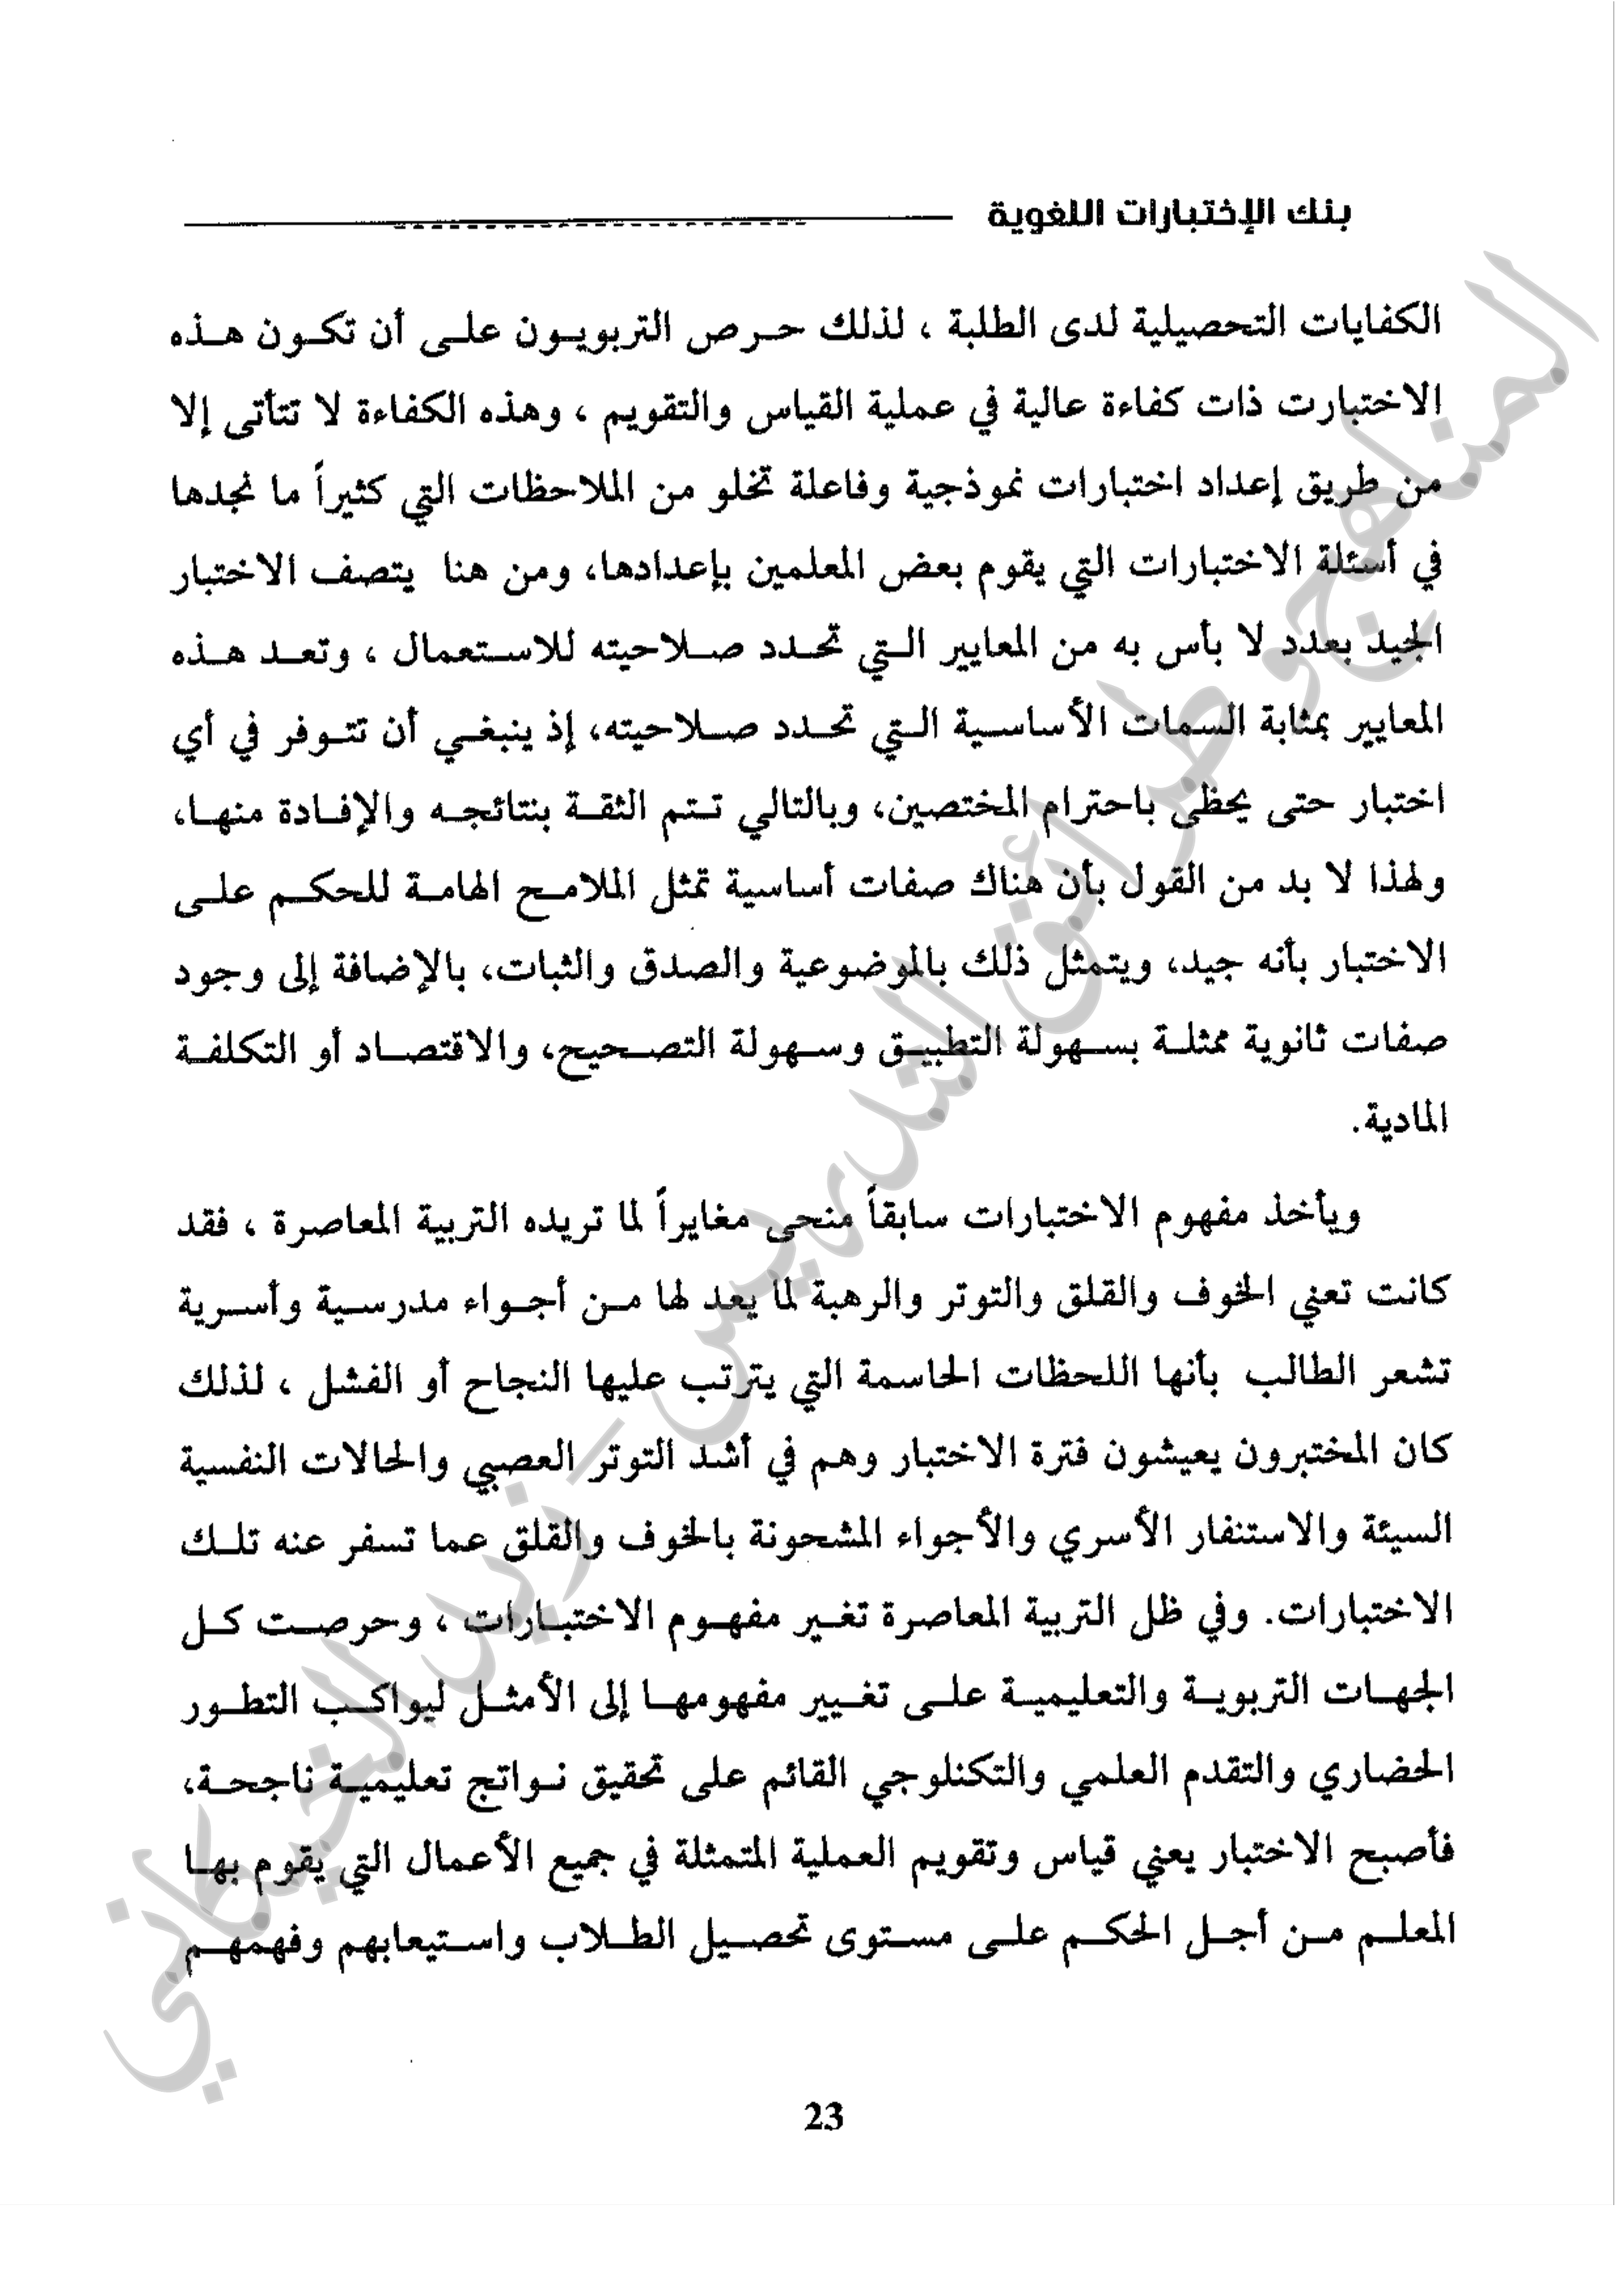 بنك الإختبارات اللغوية
الكفايات التحصيلية لدى الطلبة ، لذلك حرص التربويون على أن تكون هذه
الاختبارت ذات كفاءة عالية في عملية القياس والتقويم ، وهذه الكفاءة لا تتأتى إلا
من طريق إعداد اختبارات نموذجية وفاعلة تخلو من الملاحظات التي كثيراً ما نجدها
في أسئلة الاختبارات التي يقوم بعض المعلمين بإعدادها، ومن هنا يتصف الاختبار
الجيد بعدد لا بأس به من المعايير التي تحدد صلاحيته للاستعمال ، وتعد هذه
المعايير بمثابة السمات الأساسية التي تحدد صلاحيته، إذ ينبغي أن تتوفر في أي
اختبار حتى يحظى باحترام المختصين، وبالتالي تتم الثقة بنتائجه والإفادة منها،
ولهذا لا بد من القول بأن هناك صفات أساسية تمثل الملامح الهامة للحكم على
الاختبار بأنه جيد، ويتمثل ذلك بالموضوعية والصدق والثبات، بالإضافة إلى وجود
صفات ثانوية ممثلة بسهولة التطبيق وسهولة التصحيح، والاقتصاد أو التكلفة
المادية.
ويأخذ مفهوم الاختبارات سابقاً منحى مغايراً لما تريده التربية المعاصرة ، فقد
كانت تعني الخوف والقلق والتوتر والرهبة لما يعد لها من أجواء مدرسية وأسرية
تشعر الطالب بأنها اللحظات الحاسمة التي يترتب عليها النجاح أو الفشل ، لذلك
كان المختبرون يعيشون فترة الاختبار وهم في أشد التوتر العصبي والحالات النفسية
السيئة والاستنفار الأسري والأجواء المشحونة بالخوف والقلق عما تسفر عنه تلك
الاختبارات. وفي ظل التربية المعاصرة تغير مفهوم الاختبارات ، وحرصت كل
الجهات التربوية والتعليمية على تغيير مفهومها إلى الأمثل ليواكب التطور
الحضاري والتقدم العلمي والتكنلوجي القائم على تحقيق نواتج تعليمية ناجحة،
فأصبح الاختبار يعني قياس وتقويم العملية المتمثلة في جميع الأعمال التي يقوم بها
المعلم من أجل الحكم على مستوى تحصيل الطلاب واستيعابهم وفهمهم
23
المناهج وطرائق التدريس – زيد الخيكاني